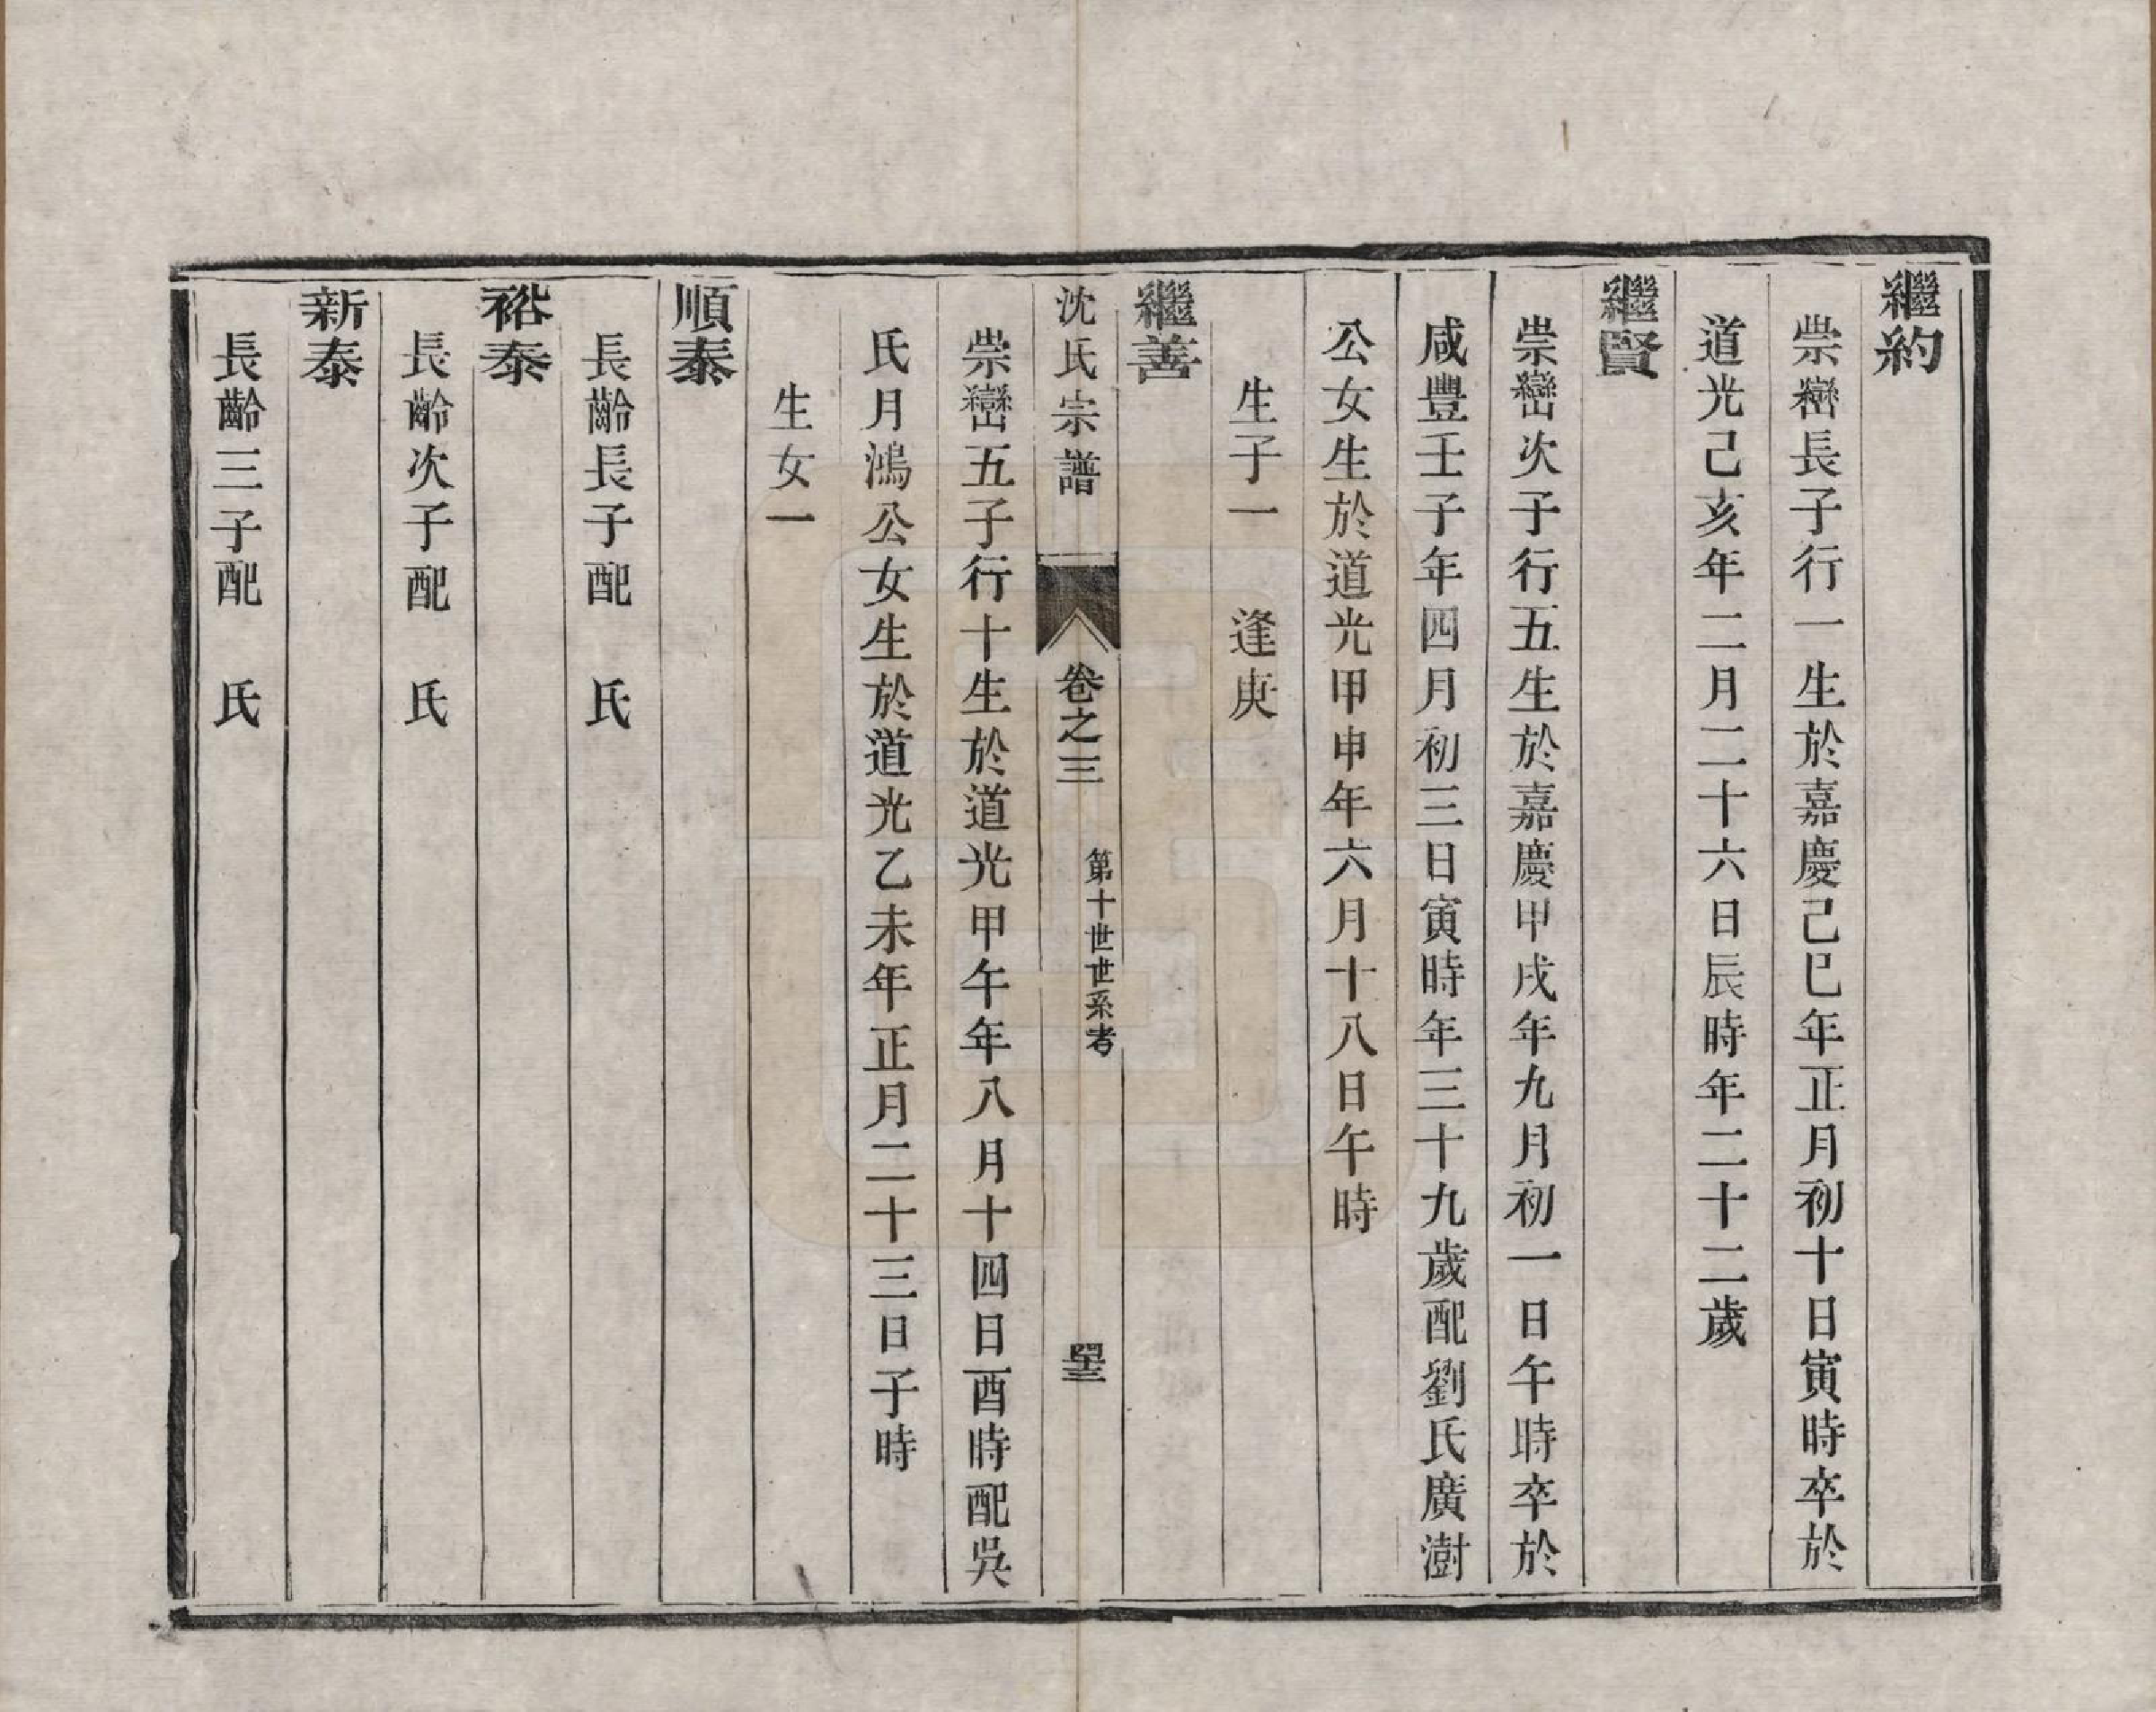 繼約
崇巒長子行一生於嘉慶己巳年正月初十日寅時卒於
道光己亥年二月二十六日辰時年二十二歲
繼賢
崇巒次子行五生於嘉慶甲戌年九月初一日午時卒於
咸豐壬子年四月初三日寅時年三十九歲配劉氏廣澍
公女生於道光甲申年六月十八日午時
生子一　逢庚
繼善
沈氏宗譜　卷之三　第十世世系考　四十三
崇巒五子行十生於道光甲午年八月十四日酉時配吳
氏月鴻公女生於道光乙未年正月二十三日子時
生女一
順泰
長齡長子配　氏
裕泰
長齡次子配　氏
新泰
長齡三子配　氏